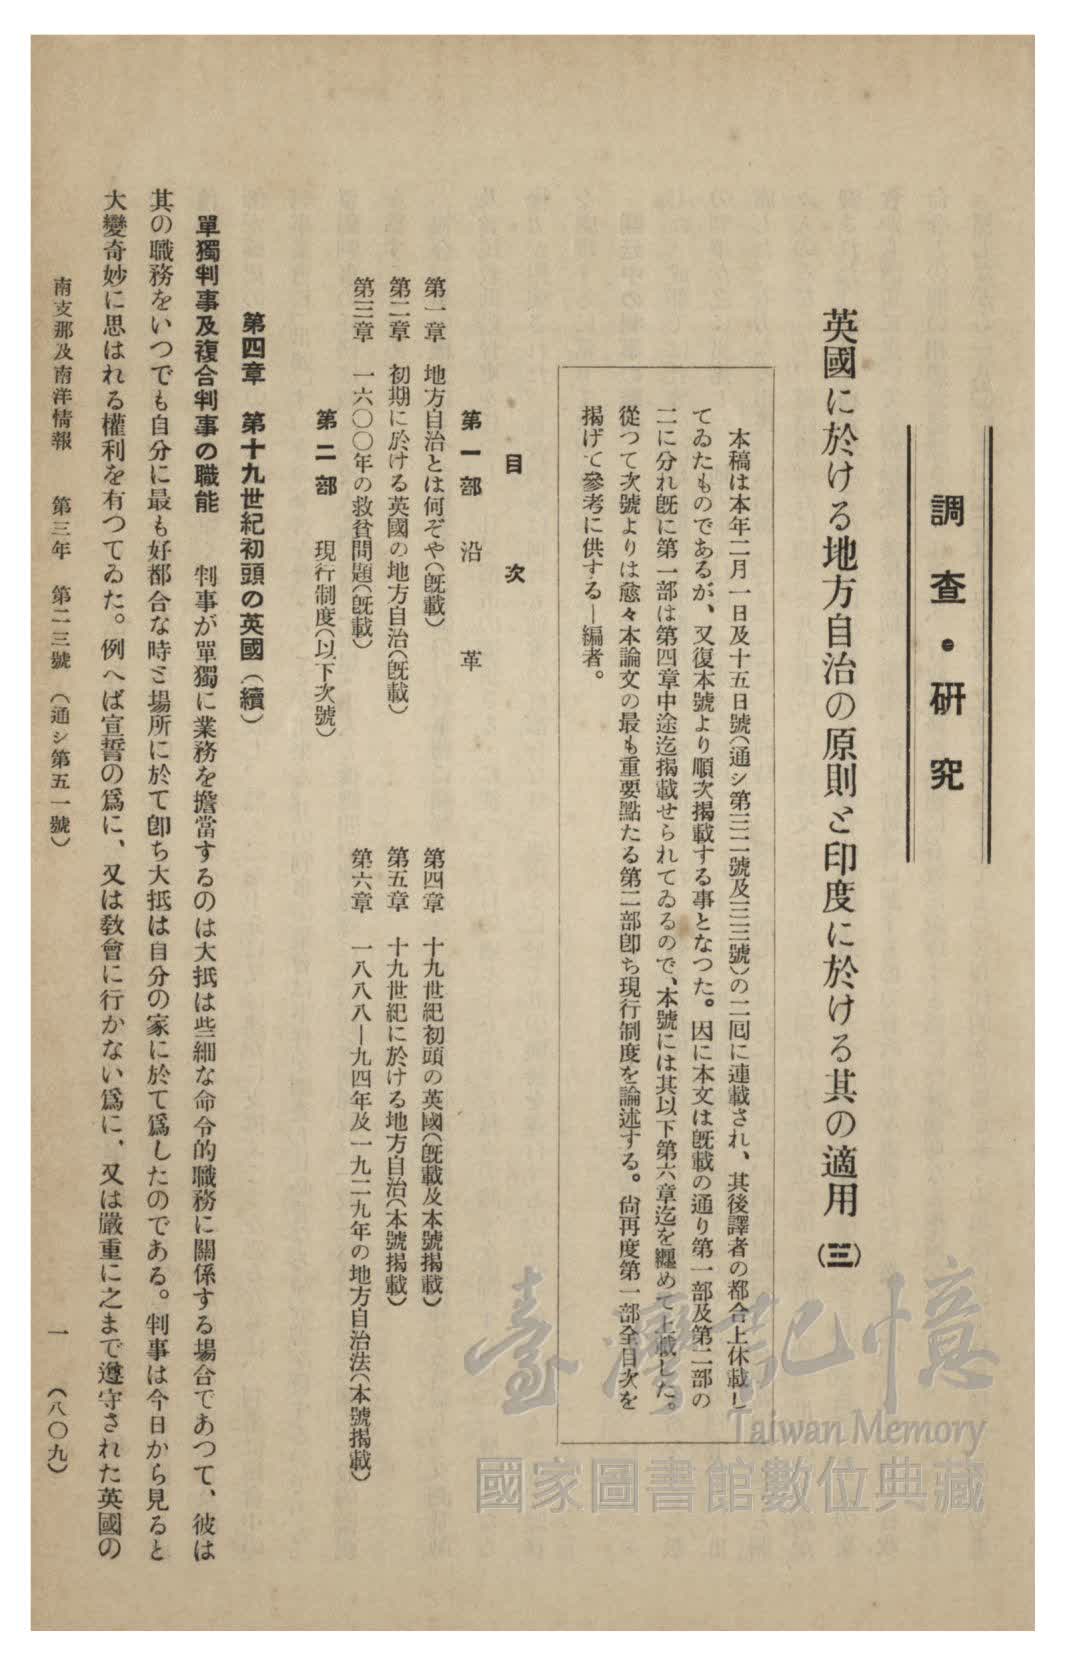 調査・研究
英國に於ける地方自治の原則と印度に於ける其の適用（三）
本稿は本年二月一日及十五日號（通シ第三二號及三三號）の二囘に連載され、其後譯者の都合上休載し
てゐたものであるが、又復本號より順次揭載する事となつた。因に本文は旣載の通り第一部及第二部の
二に分れ旣に第一部は第四章中途迄揭載せられてゐるので、本號には其以下第六章迄を纒めて上載した。
從つて次號よりは愈々本論文の最も重要點たる第二部卽ち現行制度を論述する。尙再度第一部全目次を
揭げて參考に供する—編者。
目次
第一部　沿革
第一章　地方自治とは何ぞや（旣載）
第二章　初期に於ける英國の地方自治（旣載）
第三章　一六〇〇年の救貧問題（旣載）
第四章　十九世紀初頭の英國（旣載及本號揭載）
第五章　十九世紀に於ける地方自治（本號揭載）
第六章　一八八八—九四年及一九二九年の地方自治法（本號揭載）
第二部　現行制度（以下次號）
第四章　第十九世紀初頭の英國（續）
單獨判事及複合判事の職能　判事が單獨に業務を擔當するのは大抵は些細な命令的職務に關係する場合であつて、彼は
其の職務をいつでも自分に最も好都合な時と場所に於て卽ち大抵は自分の家に於て爲したのである。判事は今日から見ると
大變奇妙に思はれる權利を有つてゐた。例へば宣誓の爲に、又は敎會に行かない爲に、又は嚴重に之まで遵守された英國の
南支那及南洋情報　第三年　第二三號（通シ第五一號）
一（八〇九）
臺灣記憶
Taiwan Memory
國家圖書館數位典藏